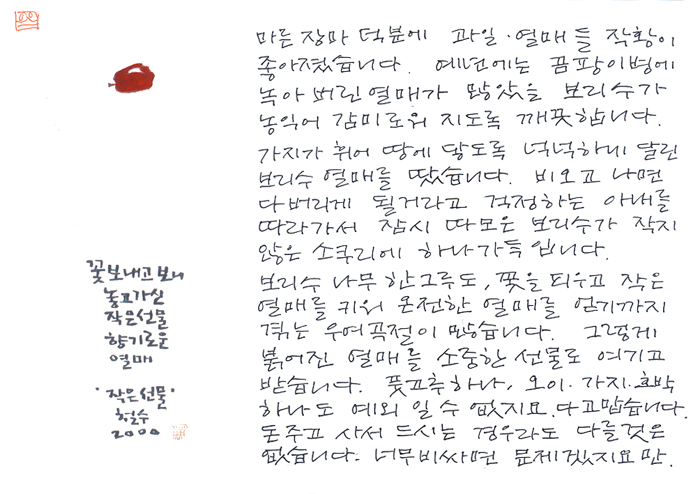 마른 장마 덕분에 과일·열매들 작황이
좋아졌습니다. 예년에는 곰팡이병에
녹아버린 열매가 많았을 보리수가
농익어 감미로워 지도록 깨끗합니다.
가지가 휘어 땅에 닿도록 넉넉하니 달린
보리수 열매를 땄습니다. 비오고 나면
다버리게 될거라고 걱정하는 아내를
따라가서 잠시 따모은 보리수가 작지
않은 소쿠리에 하나가득 입니다.
보리수 나무 한그루도, 꽃을 피우고 작은
열매를 키워 온전한 열매를 얻기까지
겪는 우여곡절이 많습니다. 그렇게
붉어진 열매를 소중한 선물로 여기고
받습니다. 풋고추하나, 오이·가지·호박
하나도 예외 일 수 없지요. 다고맙습니다.
돈주고 사서 드시는 경우라도 다를것은
없습니다. 너무비싸면 문제겠지요만.
꽃보내고보니
놓고가신
작은선물
향기로운
열매
'작은선물'
철수
2000